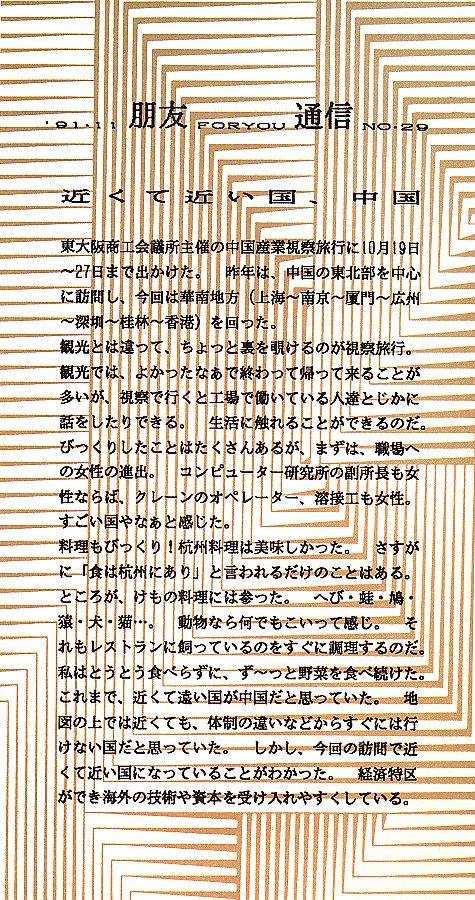 '91.11 朋友 FORYOU 通信 NO.29
近くて近い国、中国
東大阪商工会議所主催の中国産業視察旅行に10月19日
～27日まで出かけた。 昨年は、中国の東北部を中心
に訪問し、今回は華南地方（上海～南京～厦門～広州
～深圳～桂林～香港）を回った。
観光とは違って、ちょっと裏を覗けるのが視察旅行。
観光では、よかったなあで終わって帰って来ることが
多いが、視察で行くと工場で働いている人達とじかに
話をしたりできる。 生活に触れることができるのだ。
びっくりしたことはたくさんあるが、まずは、職場へ
の女性の進出。 コンピューター研究所の副所長も女
性ならば、クレーンのオペレーター、溶接工も女性。
すごい国やなぁと感じた。
料理もびっくり！杭州料理は美味しかった。 さすが
に「食は杭州にあり」と言われるだけのことはある。
ところが、けもの料理には参った。 へび・蛙・鳩・
猿・犬・猫…。 動物なら何でもこいって感じ。 そ
れもレストランに飼っているのをすぐに調理するのだ。
私はとうとう食べらずに、ず～っと野菜を食べ続けた。
これまで、近くて遠い国が中国だと思っていた。 地
図の上では近くても、体制の違いなどからすぐには行
けない国だと思っていた。 しかし、今回の訪問で近
くて近い国になっていることがわかった。 経済特区
ができ海外の技術や資本を受け入れやすくしている。